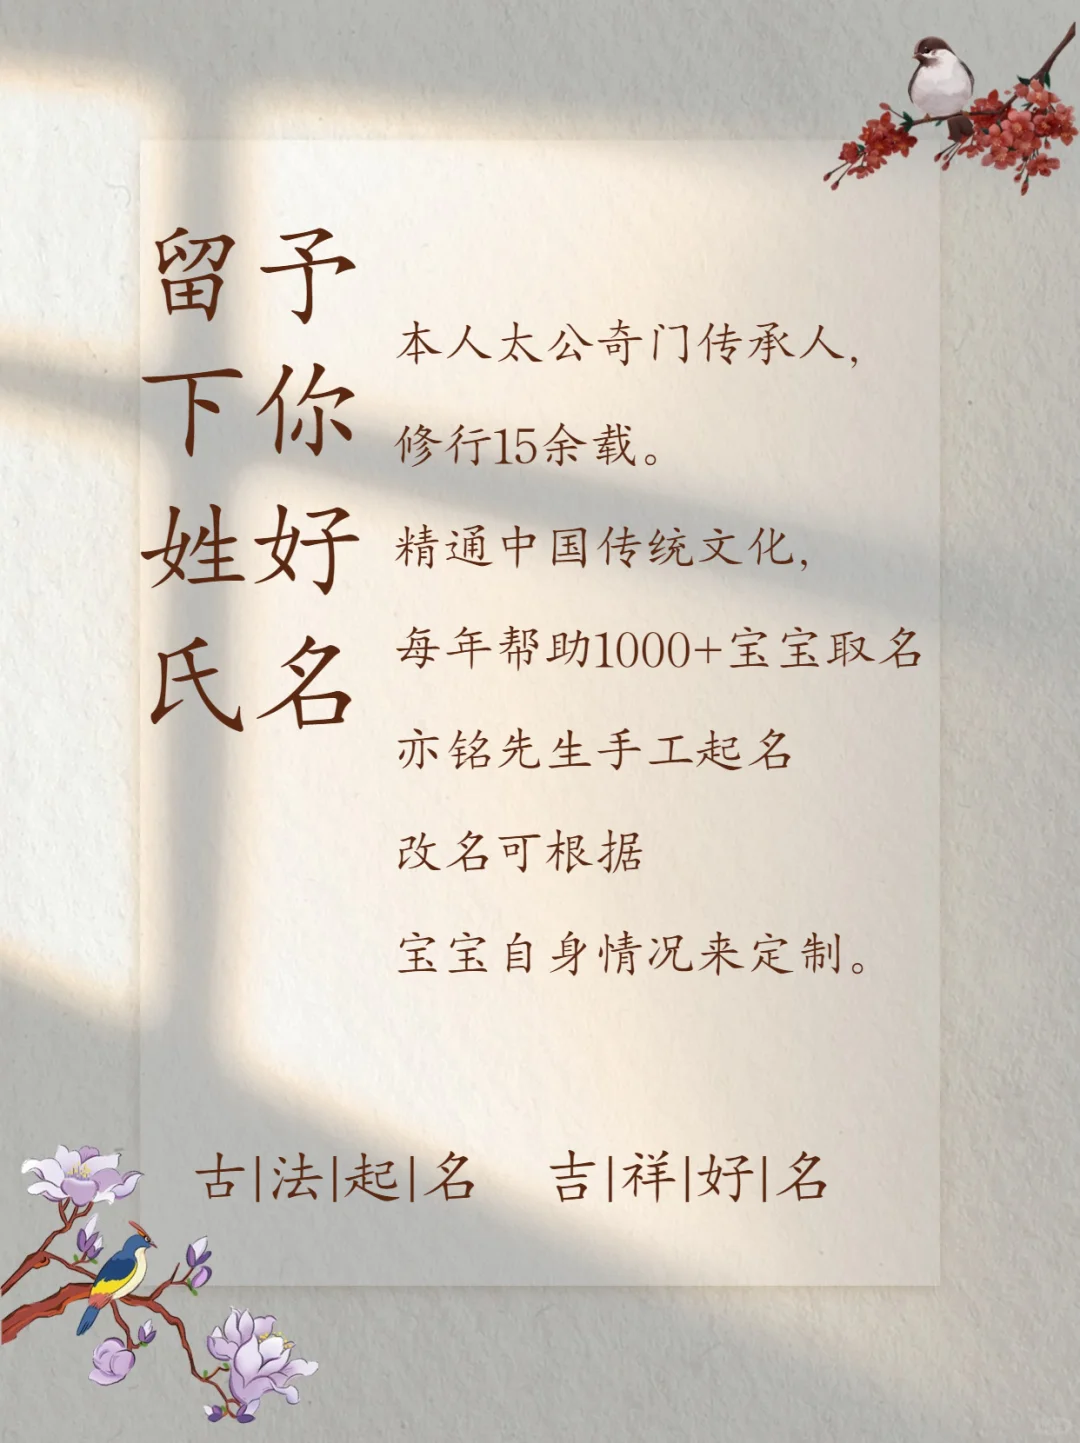 留下姓氏
予你好名
本人太公奇门传承人，
修行15余载。
精通中国传统文化，
每年帮助1000+宝宝取名
亦铭先生手工起名
改名可根据
宝宝自身情况来定制。
古|法|起|名 吉|祥|好|名